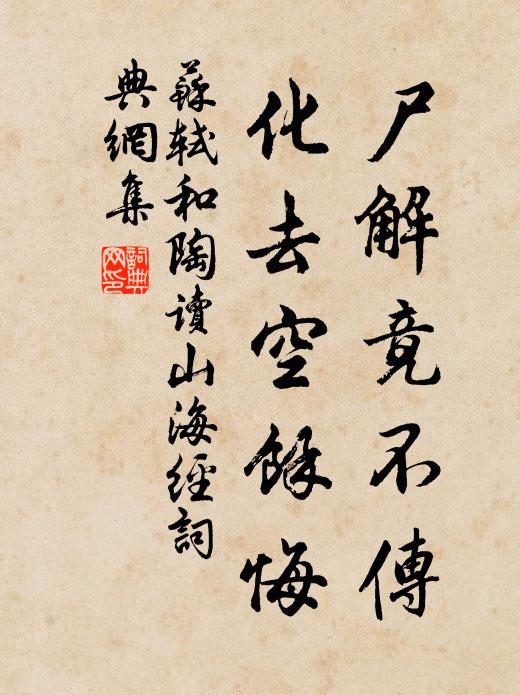 尸解竟不傳
化去空餘悔
蘇軾和陶讀山海經詞
典網集
詞典
网印